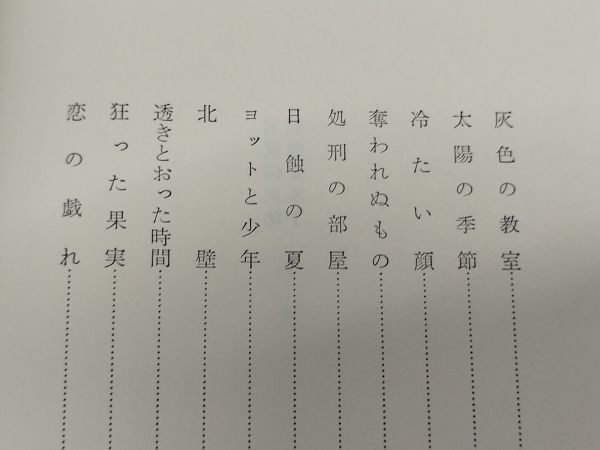 灰色の教室
太陽の季節
冷たい顔
奪われぬもの
処刑の部屋
日蝕の夏
ヨットと少年
北壁
透きとおった時間
狂った果実
恋の戯れ